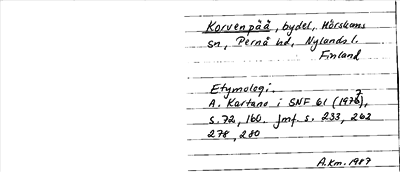 Korvenpää, bydel, Hörskans
sn, Pernå hd, Nylands l.
Finland
Etymologi.
A. Kartano i SNF 61 (1977),
s. 72, 160. Jmf. s. 233, 262
278, 280
A.Km. 1987